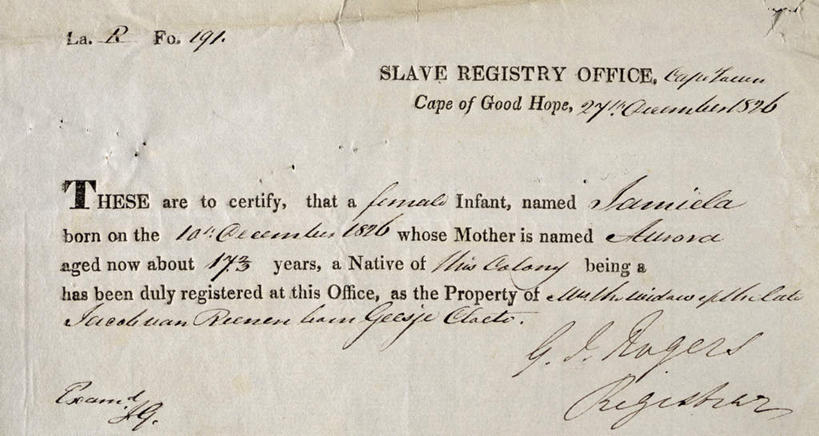 La. R Fo. 191.
SLAVE REGISTRY OFFICE, Cape Town
Cape of Good Hope, 27th December 1826
THESE are to certify, that a female Infant, named Jamiela
born on the 10th December 1826 whose Mother is named Aurora
aged now about years, a Native of this Colony being a
has been duly registered at this Office, as the Property of Mrs the widow of the late
Jacob van Reenen born Geesje Cloete.
G. J. Rogers
Registrar
Examd
J.G.